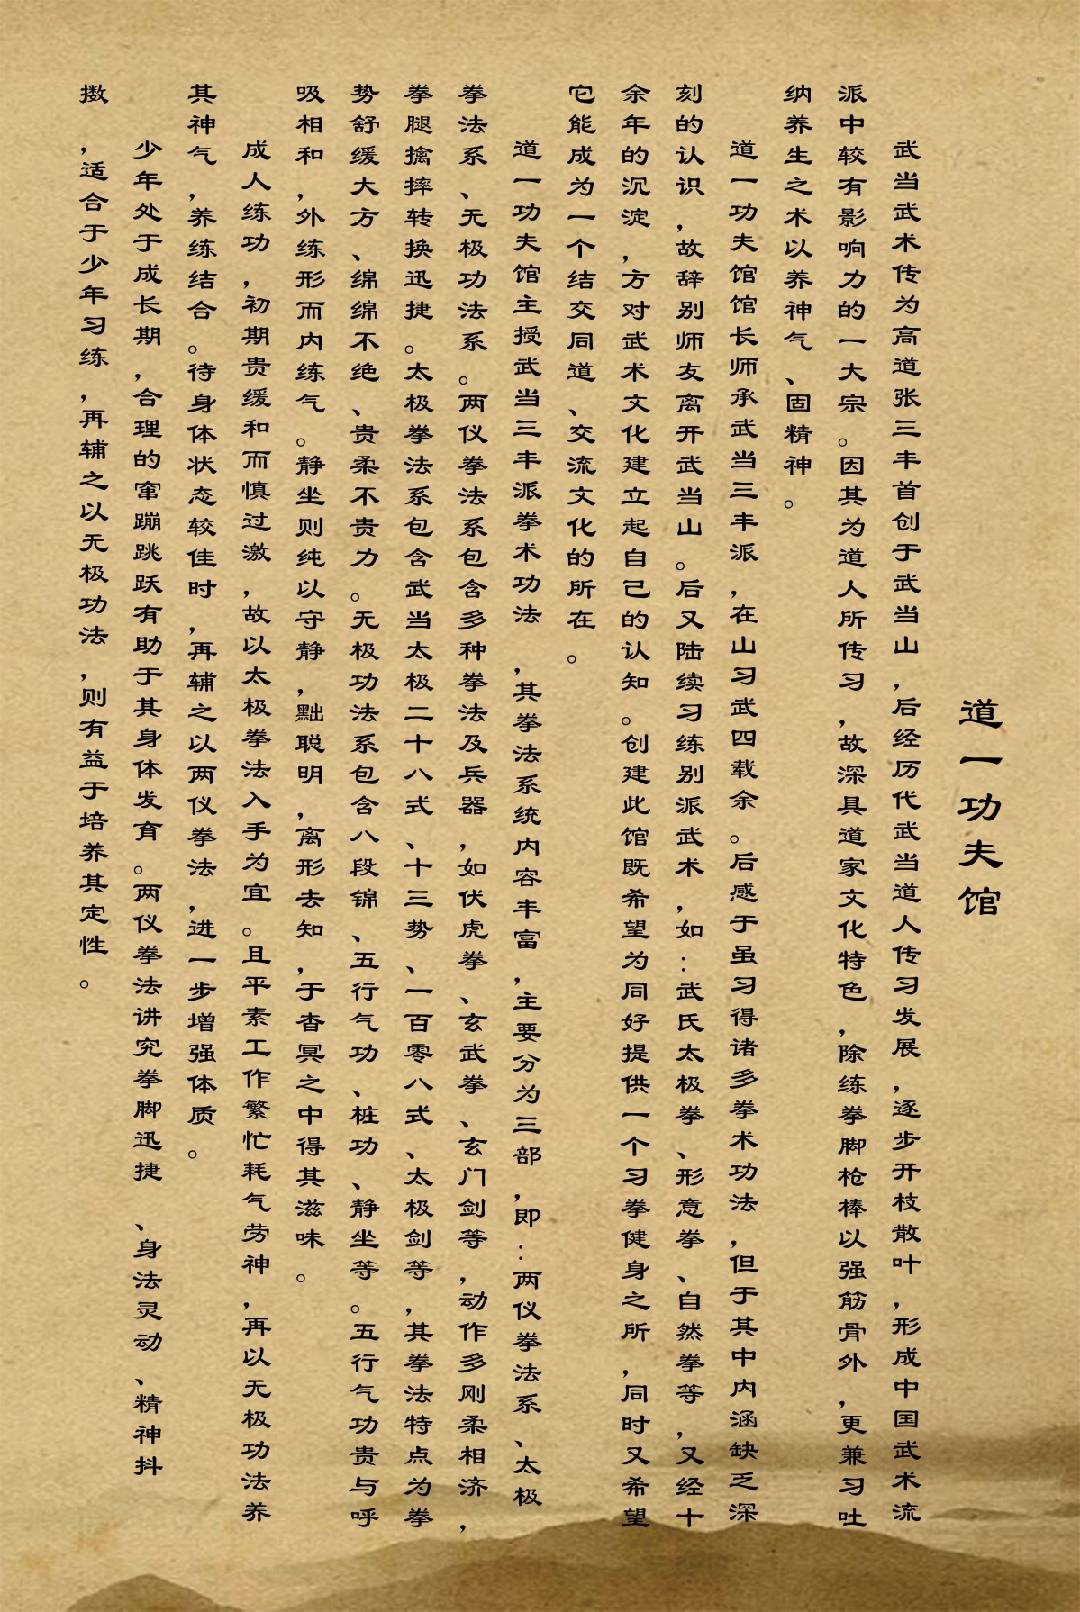 道一功夫馆
武当武术传为高道张三丰首创于武当山，后经历代武当道人传习发展，逐步开枝散叶，形成中国武术流
派中较有影响力的一大宗。因其为道人所传习，故深具道家文化特色，除练拳脚枪棒以强筋骨外，更兼习吐
纳养生之术以养神气、固精神。
道一功夫馆馆长师承武当三丰派，在山习武四载余。后感于虽习得诸多拳术功法，但于其中内涵缺乏深
刻的认识，故辞别师友离开武当山。后又陆续习练别派武术，如：武氏太极拳、形意拳、自然拳等，又经十
余年的沉淀，方对武术文化建立起自己的认知。创建此馆既希望为同好提供一个习拳健身之所，同时又希望
它能成为一个结交同道、交流文化的所在。
道一功夫馆主授武当三丰派拳术功法，其拳法系统内容丰富，主要分为三部，即：两仪拳法系、太极
拳法系、无极功法系。两仪拳法系包含多种拳法及兵器，如伏虎拳、玄武拳、玄门剑等，动作多刚柔相济，
拳腿擒摔转换迅捷。太极拳法系包含武当太极二十八式、十三势、一百零八式、太极剑等，其拳法特点为拳
势舒缓大方、绵绵不绝、贵柔不贵力。无极功法系包含八段锦、五行气功、桩功、静坐等。五行气功贵与呼
吸相和，外练形而内练气。静坐则纯以守静，黜聪明，离形去知，于杳冥之中得其滋味。
成人练功，初期贵缓和而慎过激，故以太极拳法入手为宜。且平素工作繁忙耗气劳神，再以无极功法养
其神气，养练结合。待身体状态较佳时，再辅之以两仪拳法，进一步增强体质。
少年处于成长期，合理的窜蹦跳跃有助于其身体发育。两仪拳法讲究拳脚迅捷、身法灵动、精神抖
擞，适合于少年习练，再辅之以无极功法，则有益于培养其定性。